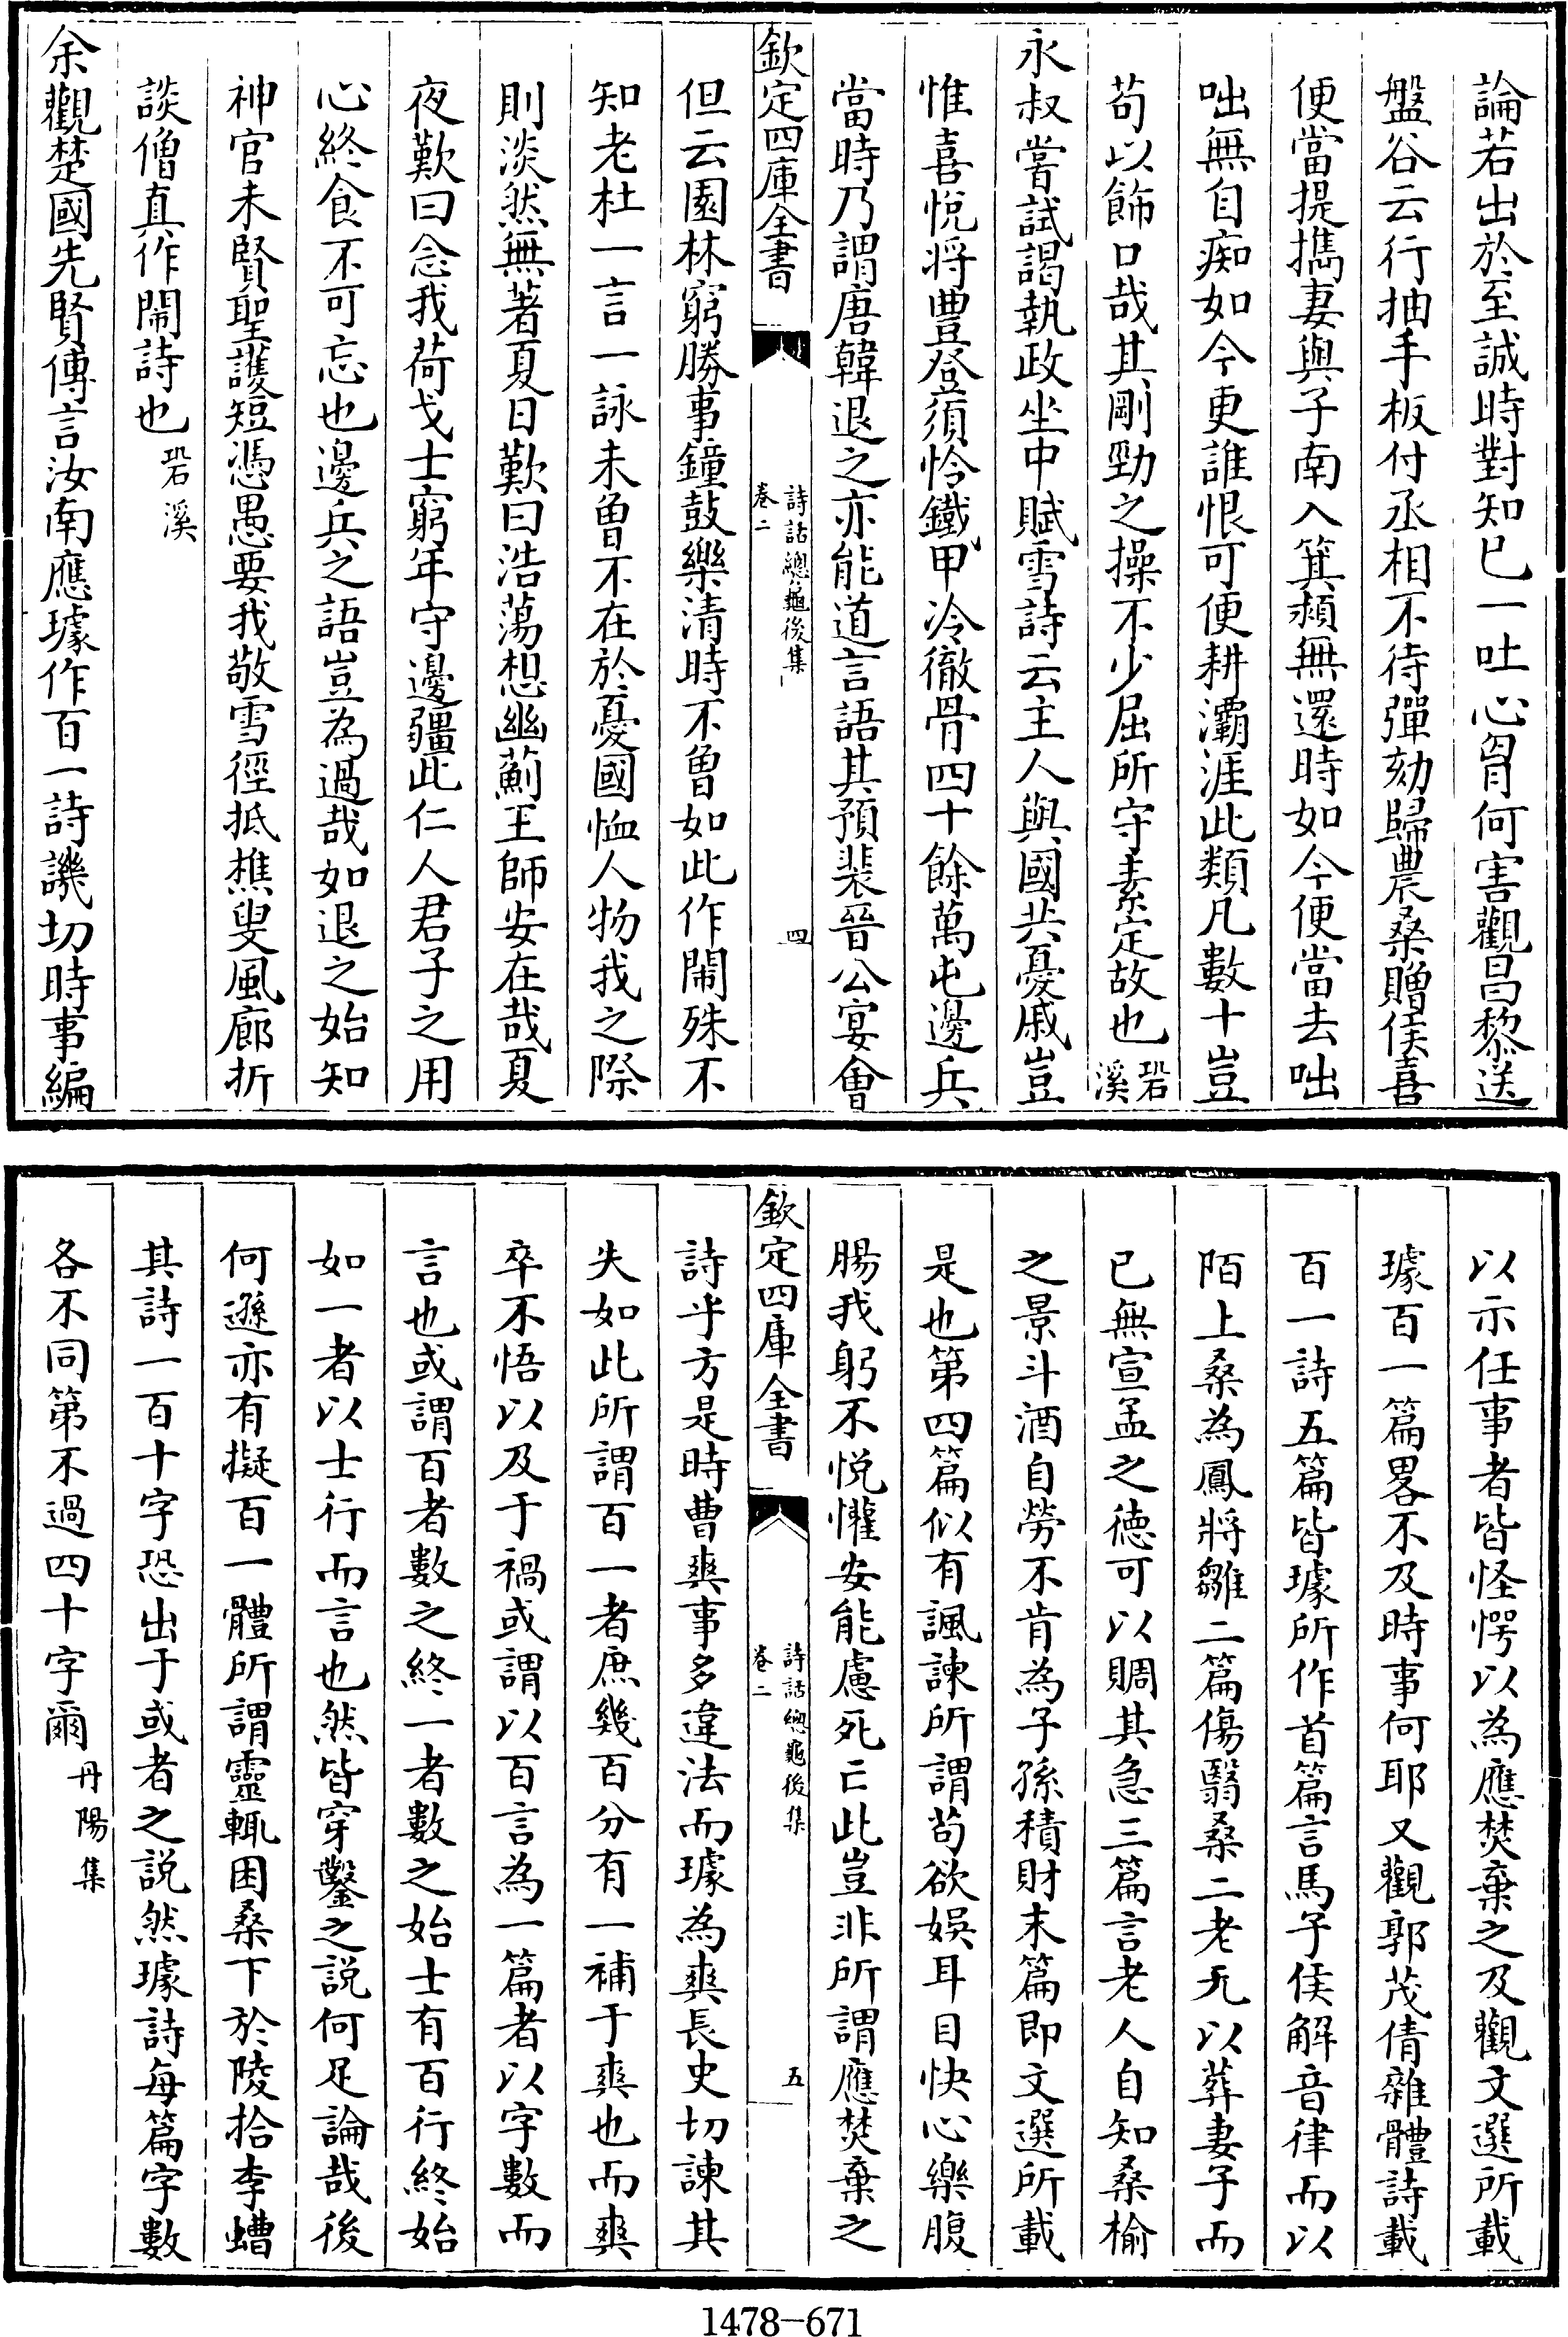 論若出於至誠時對知已一吐心胷何害觀昌黎送
盤谷云行抽手板付丞相不待彈劾歸農桑贈侯喜
便當提攜妻與子南入箕潁無還時如今便當去咄
咄無自痴如今更誰恨可便耕灞涯此類凡數十豈
苟以飾口哉其剛勁之操不少屈所守素定故也䂬溪
永叔嘗試謁執政坐中賦雪詩云主人與國共憂戚豈
惟喜悅將豐登須怜鐵甲冷徹骨四十餘萬屯邊兵
當時乃謂唐韓退之亦能道言語其預裴晉公宴會
欽定四庫全書
詩話總龜後集
卷二
四
但云園林窮勝事鐘鼓樂清時不曾如此作鬧殊不
知老杜一言一詠未曾不在於憂國恤人物我之際
則淡然無著夏日歎曰浩蕩想幽薊王師安在哉夏
夜歎曰念我荷戈士窮年守邊疆此仁人君子之用
心終食不可忘也邊兵之語豈為過哉如退之始知
神官未賢聖護短憑愚要我敬雪徑抵樵叟風廊折
談僧真作鬧詩也䂬溪
余觀楚國先賢傳言汝南應璩作百一詩譏切時事編
以示任事者皆怪愕以為應焚棄之及觀文選所載
璩百一篇畧不及時事何耶又觀郭茂倩雜體詩載
百一詩五篇皆璩所作首篇言馬子侯解音律而以
陌上桑為鳳將雛二篇傷翳桑二老无以葬妻子而
已無宣孟之徳可以賙其急三篇言老人自知桑榆
之景斗酒自勞不肯為子孫積財末篇即文選所載
是也第四篇似有諷諫所謂茍欲娛耳目快心樂腹
腸我躬不悅懽安能慮死亡此豈非所謂應焚棄之
欽定四庫全書
詩話總龜後集
卷二
五
詩乎方是時曹爽事多違法而璩為爽長史切諫其
失如此所謂百一者庶幾百分有一補于爽也而爽
卒不悟以及于禍或謂以百言為一篇者以字數而
言也或謂百者數之終一者數之始士有百行終始
如一者以士行而言也然皆穿鑿之説何足論哉後
何遜亦有擬百一體所謂靈輒困桑下於陵拾李螬
其詩一百十字恐出于或者之説然璩詩每篇字數
各不同第不過四十字爾丹陽集
1478-671